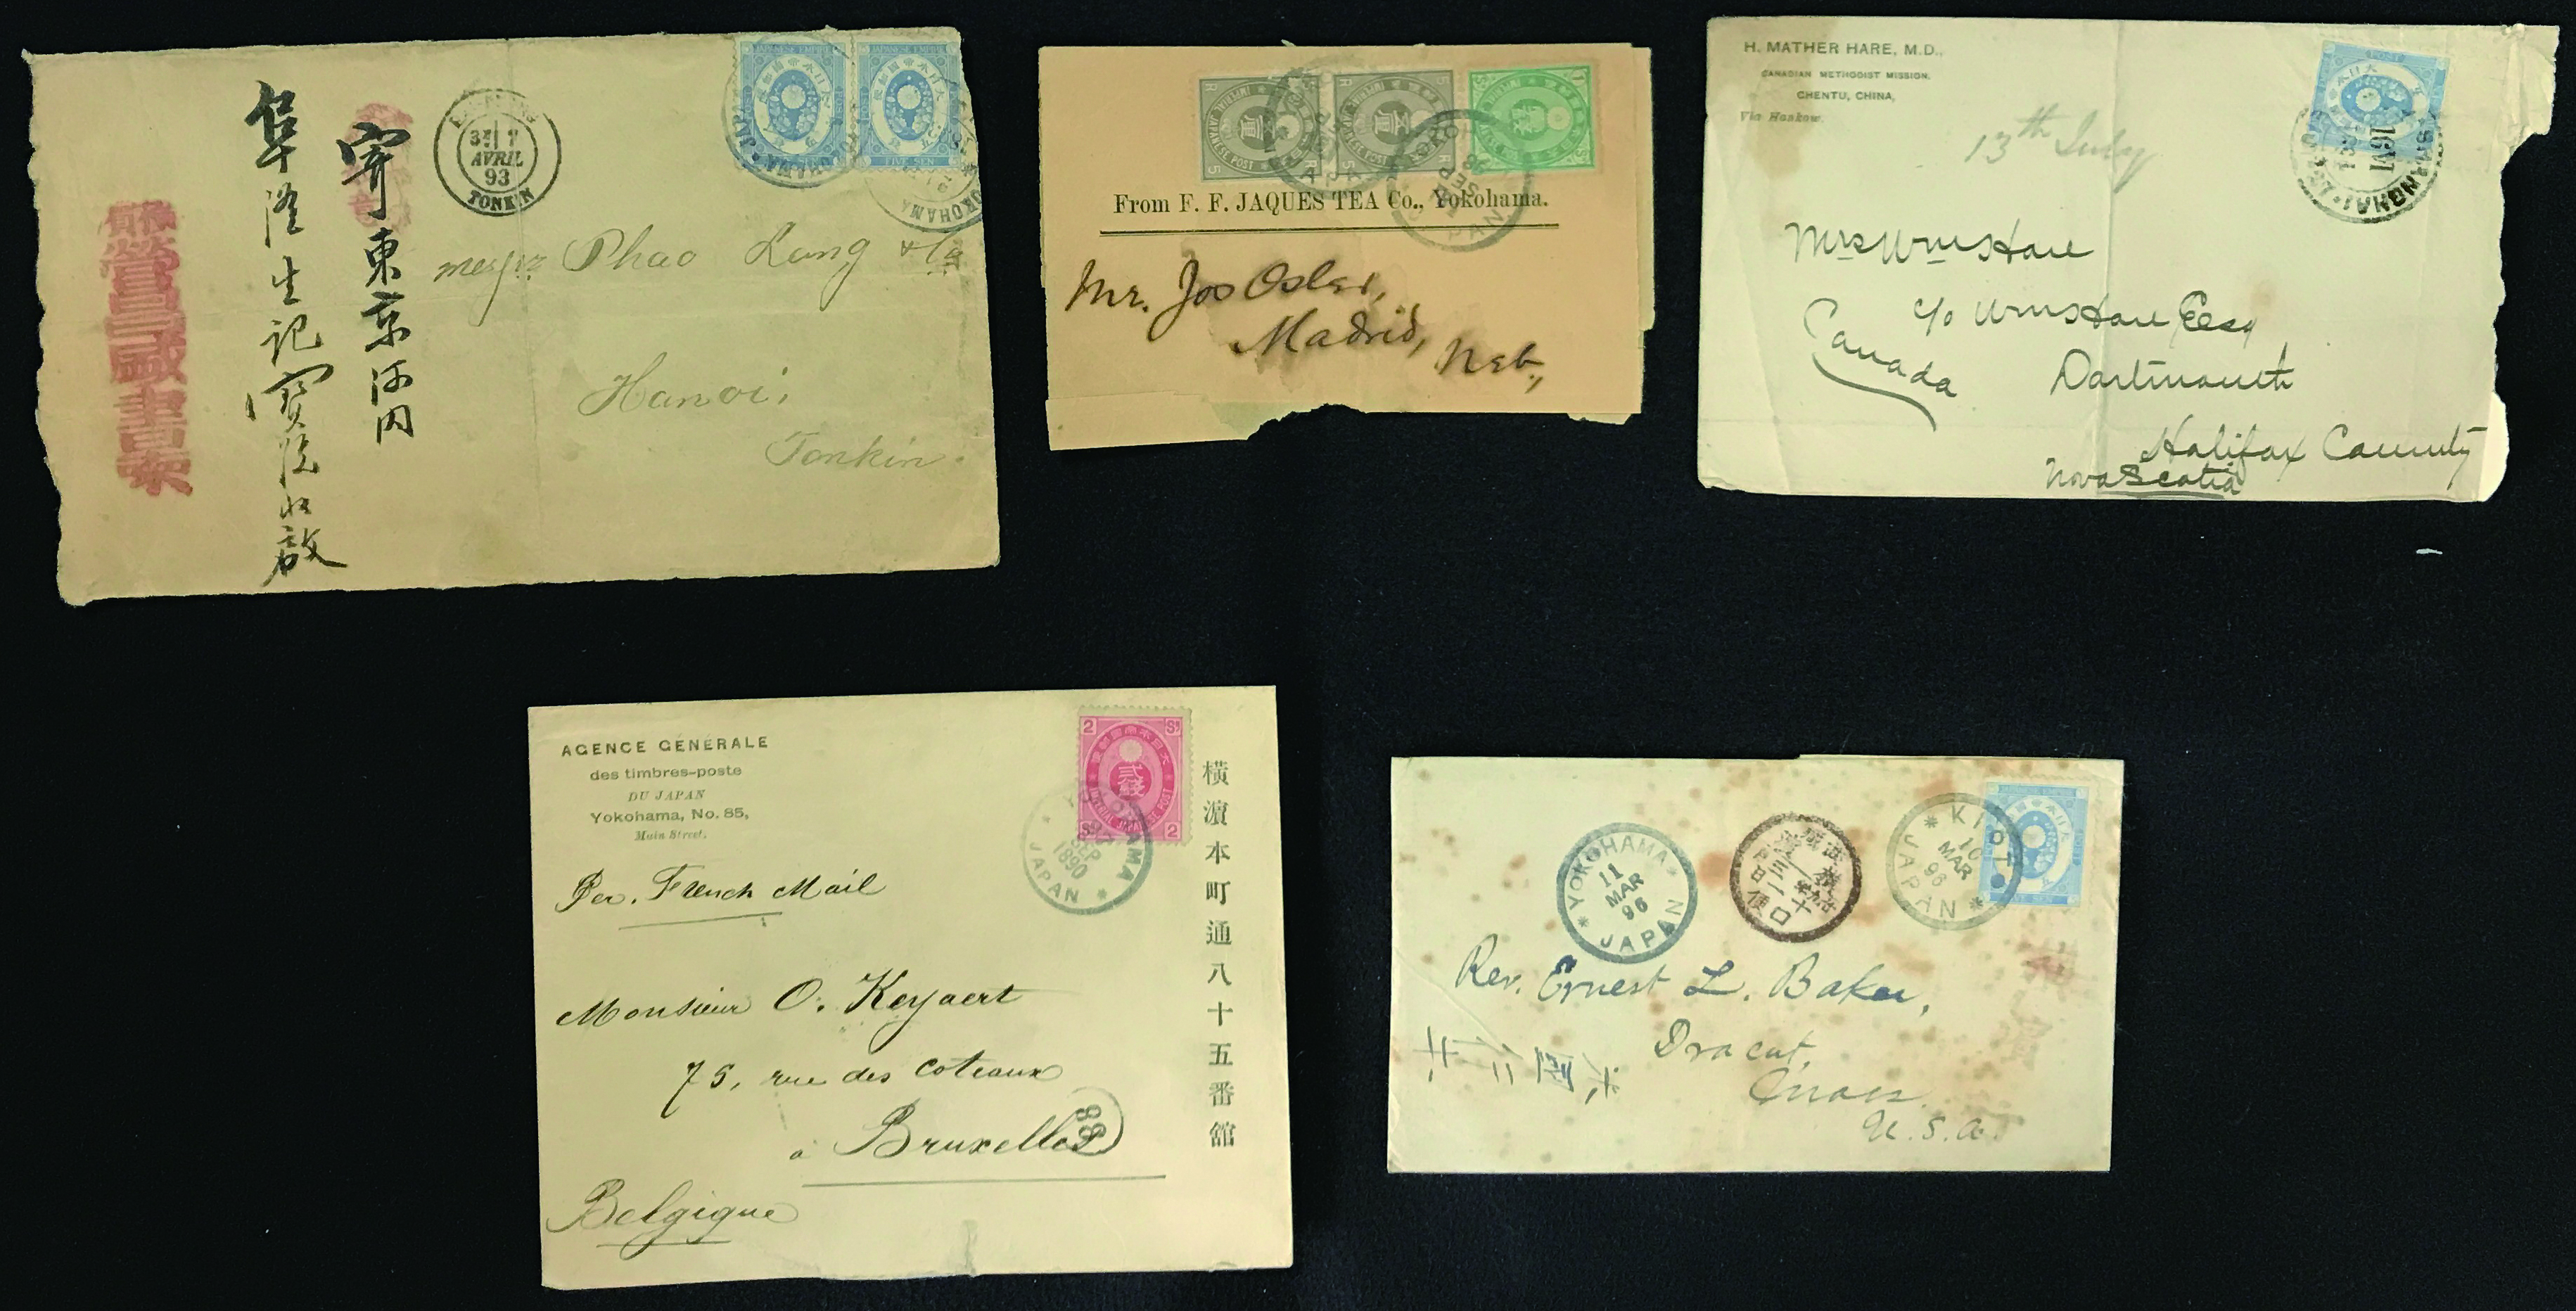 寄東京河内
阜隆生記寶號收啟
AVRIL
93
TONKIN
Phao Lang & Co
Hanoi,
Tonkin.
JAPANESE EMPIRE
JAPANESE EMPIRE
FIVE SEN
YOKOHAMA
From F. F. JAQUES TEA Co., Yokohama.
Mr. Jos Osler,
Madrid, Neb.,
H. MATHER HARE, M.D.,
CANADIAN METHODIST MISSION,
CHENTU, CHINA,
Via Hankow.
13th July
SHANGHAI
Mrs Wm Hare
c/o Wm Hare Esq
Dartmouth
Halifax County
Nova Scotia
Canada
AGENCE GÉNÉRALE
des timbres-poste
DU JAPAN
Yokohama, No. 85,
Main Street.
2 Sn
貳錢
IMPERIAL JAPANESE POST
Sn 2
YOKOHAMA
SEP
1890
JAPAN
横濵本町通八十五番館
Per. French Mail
Monsieur O. Keyaert
75, rue des coteaux
à Bruxelles
88
Belgique
YOKOHAMA
11
MAR
96
JAPAN
KIOTO
10
MAR
96
JAPAN
FIVE SEN
Rev. Ernest L. Baker,
Dracut,
Mass.
U.S.A.